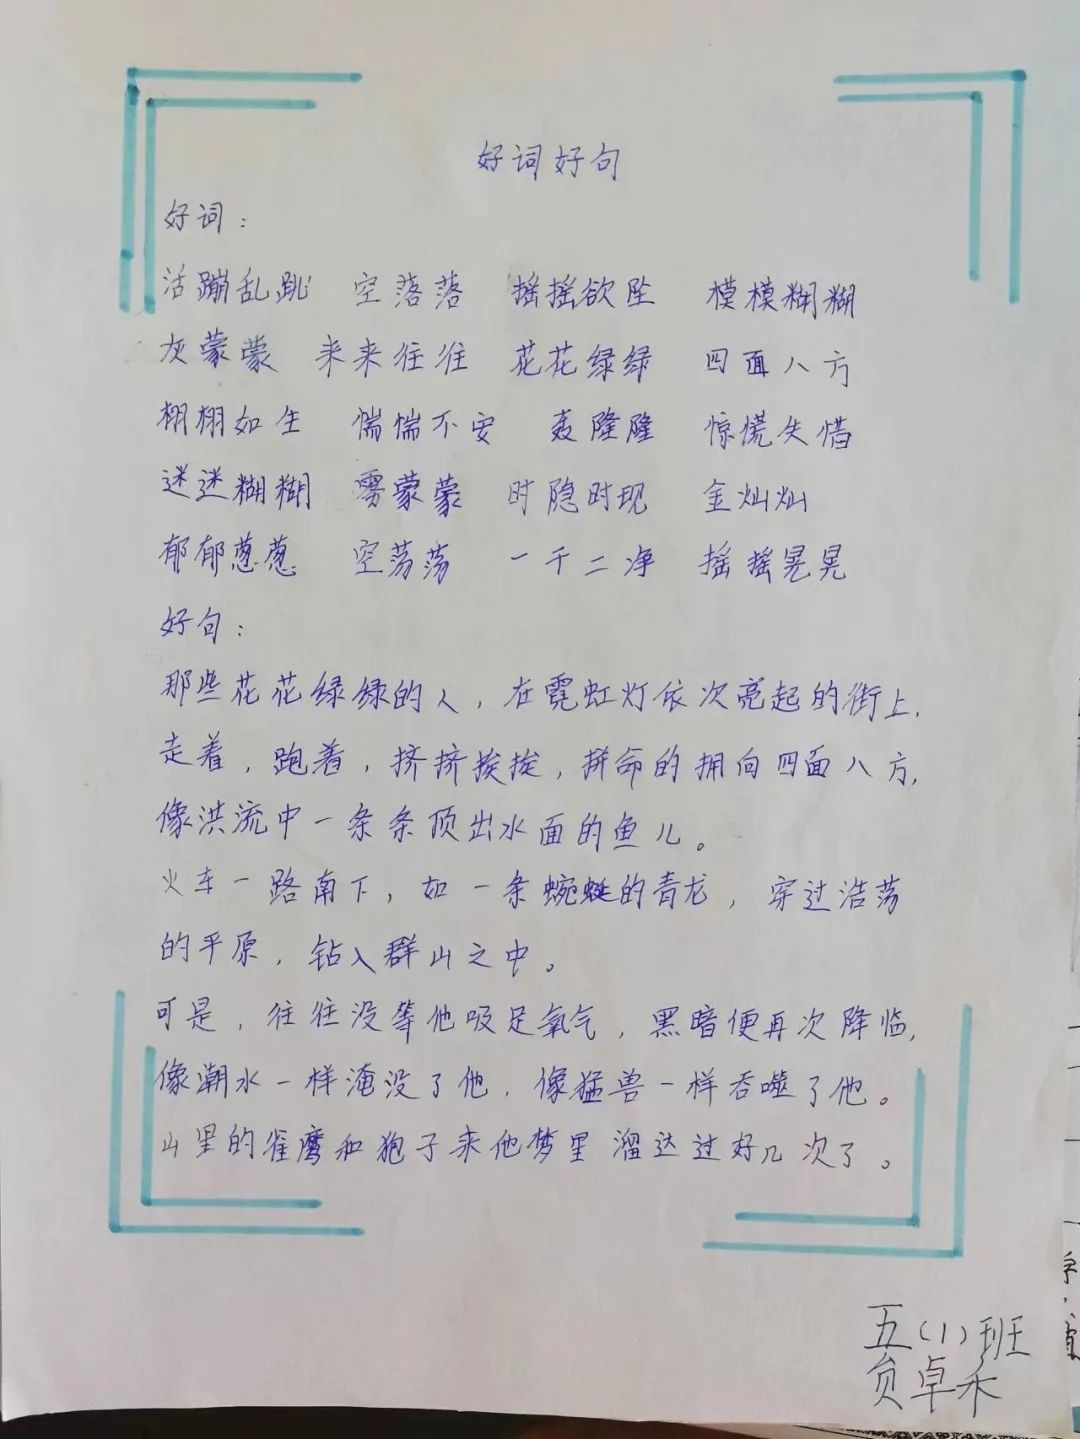 好词好句
好词：
活蹦乱跳 空落落 摇摇欲坠 模模糊糊
灰蒙蒙 来来往往 花花绿绿 四面八方
栩栩如生 惴惴不安 轰隆隆 惊慌失惜
迷迷糊糊 雾蒙蒙 时隐时现 金灿灿
郁郁葱葱 空荡荡 一干二净 摇摇晃晃
好句：
那些花花绿绿的人，在霓虹灯依次亮起的街上，
走着，跑着，挤挤挨挨，拼命的拥向四面八方，
像洪流中一条条顶出水面的鱼儿。
火车一路南下，如一条蜿蜒的青龙，穿过浩荡
的平原，钻入群山之中。
可是，往往没等他吸足氧气，黑暗便再次降临，
像潮水一样淹没了他，像猛兽一样吞噬了他。
山里的雀鹰和狍子来他梦里溜达过好几次了。
五（1）班
贠卓禾